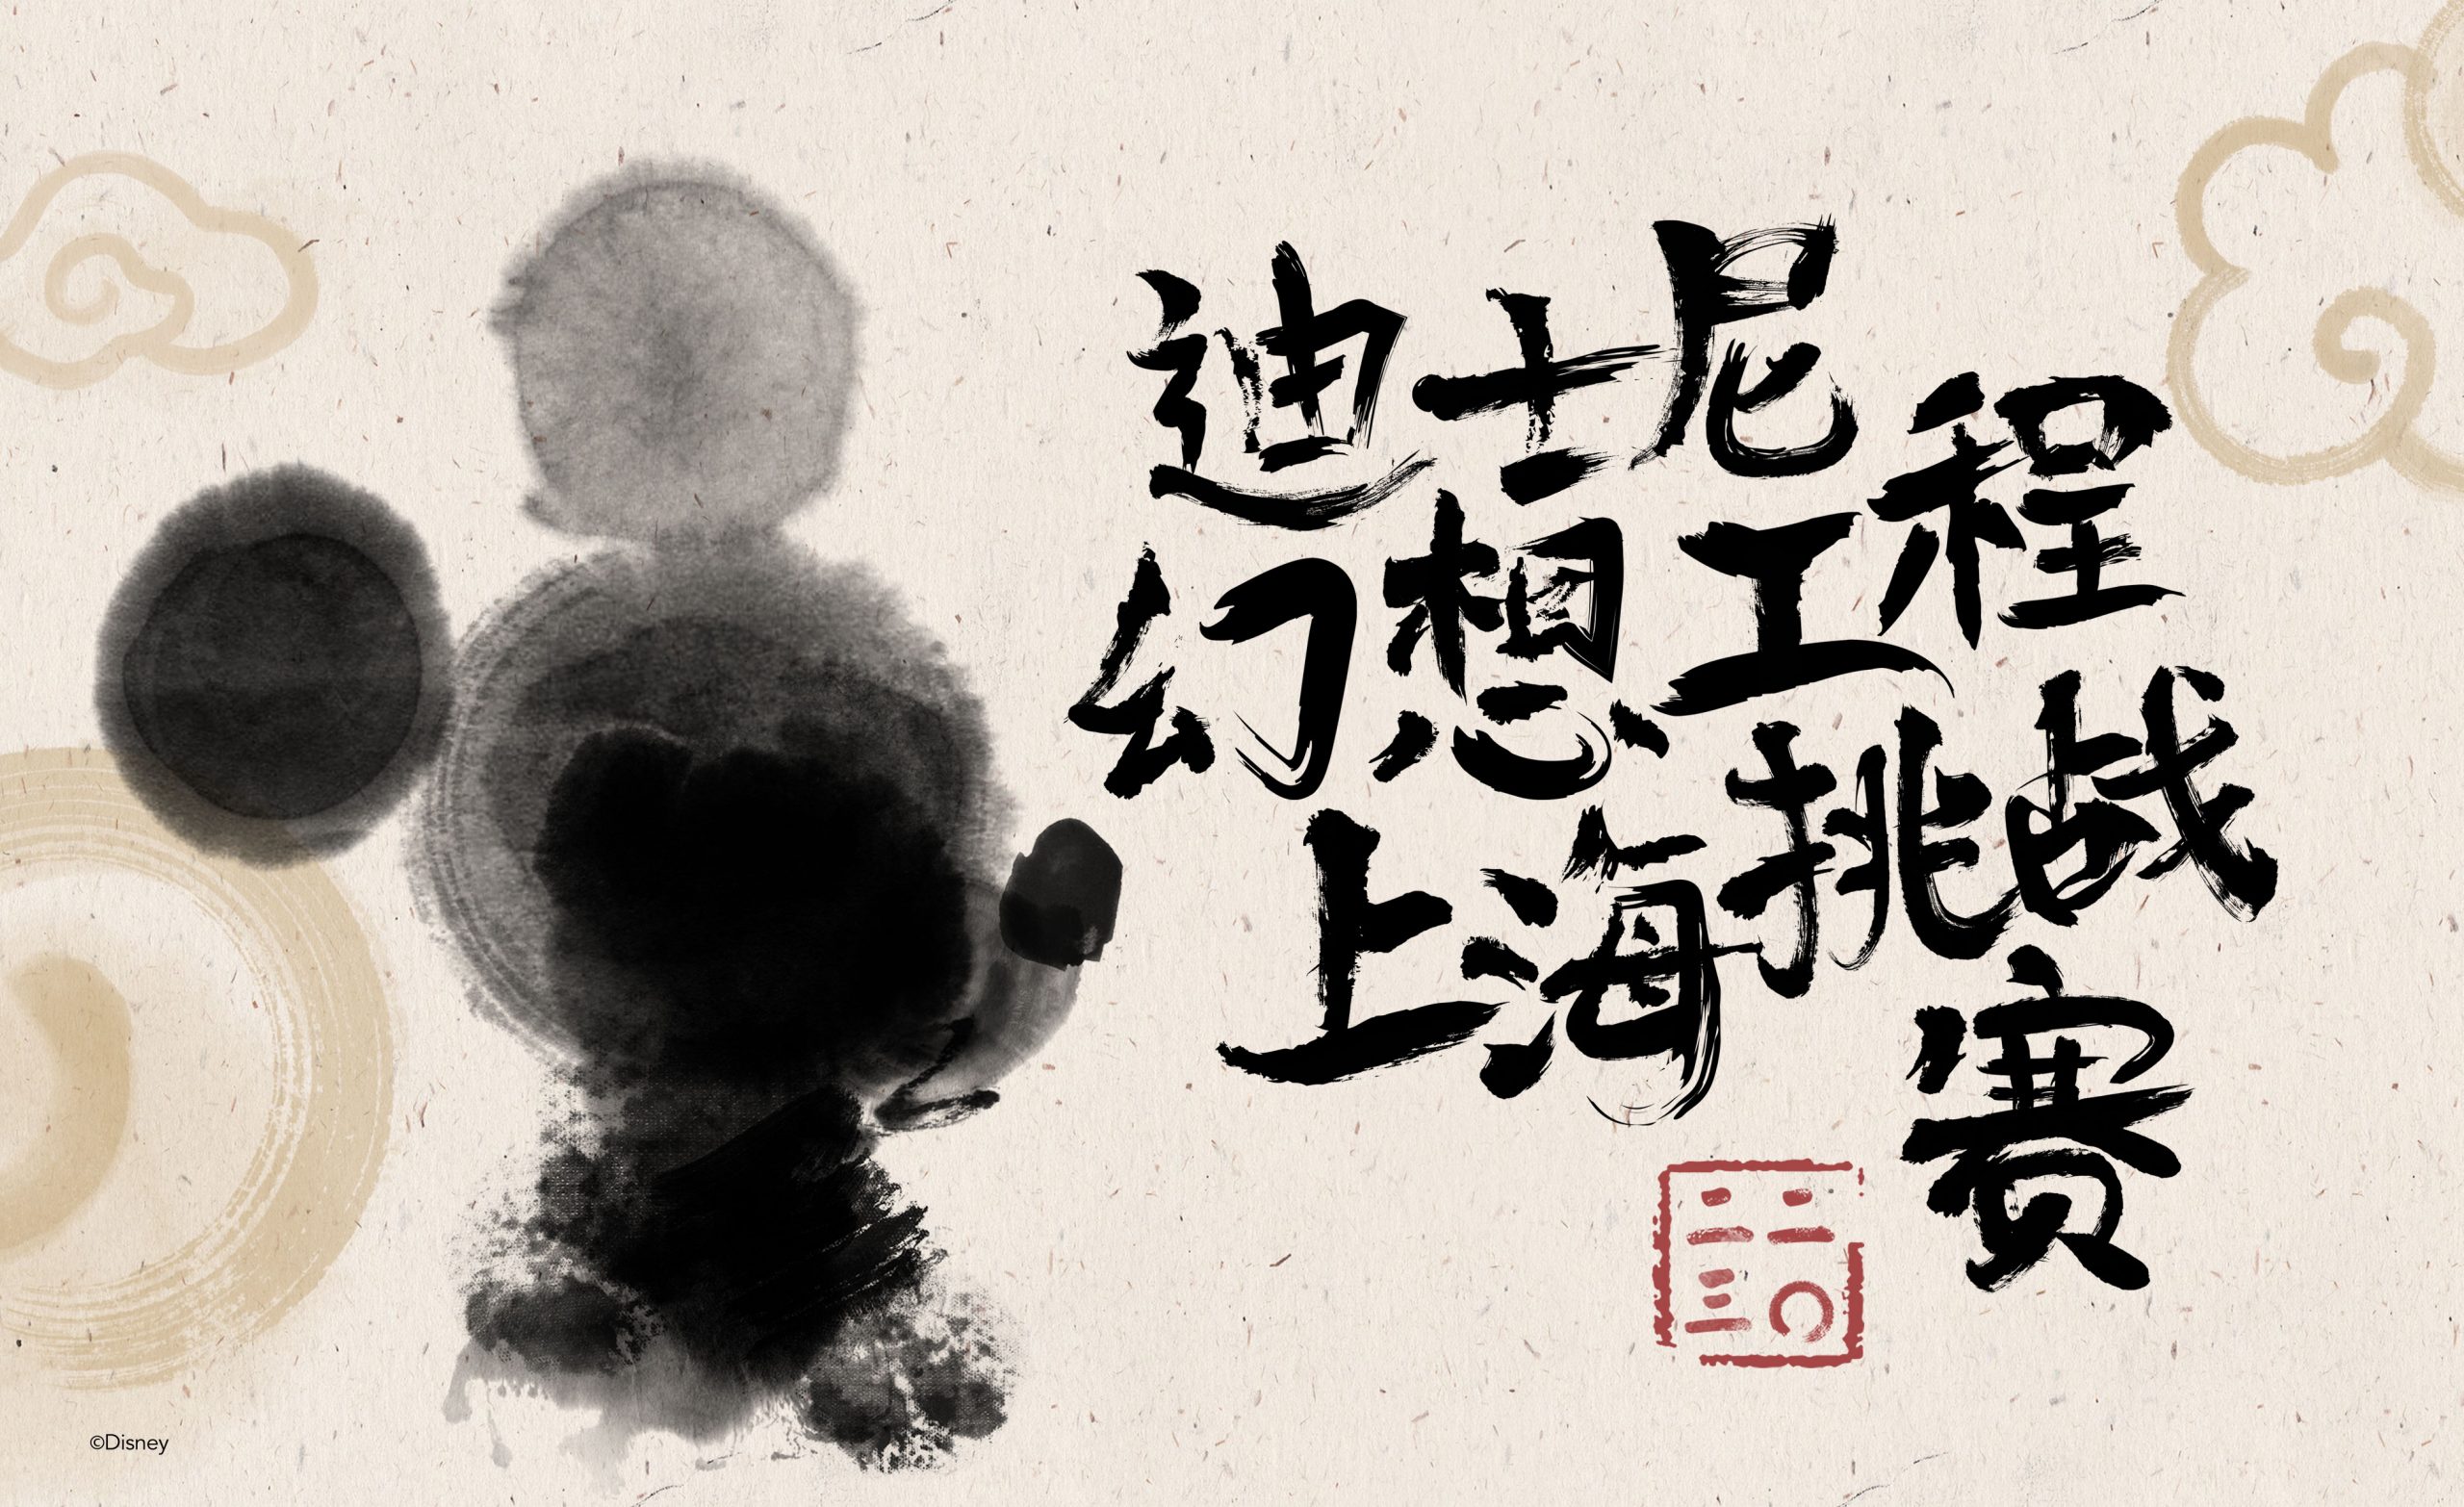 迪士尼
幻想工程
上海挑战赛
二〇二三
©Disney